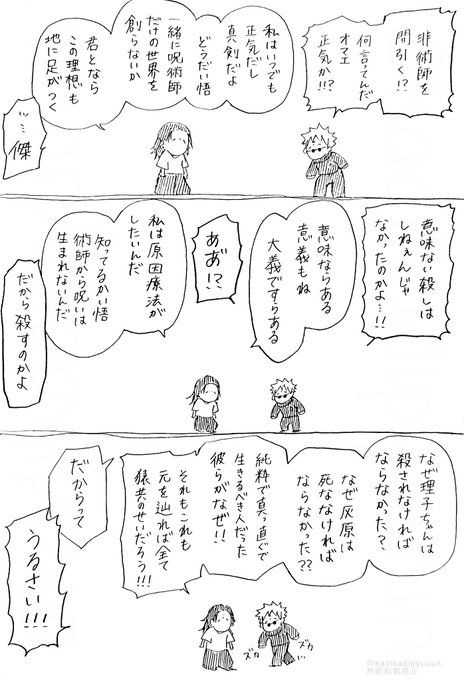 非術師を
間引く!?
何言ってんだ
オマエ
正気か!!?
私はいつでも
正気だし
真剣だよ
どうだい悟
一緒に呪術師
だけの世界を
創らないか
君となら
この理想も
地に足がつく
…傑
意味ない殺しは
しねぇんじゃ
なかったのかよ…!!
意味ならある
意義もね
大義ですらある
あ゛!?
私は原因療法が
したいんだ
知ってるかい悟
術師から呪いは
生まれないんだ
だから殺すのかよ
なぜ理子ちゃんは
殺されなければ
ならなかった?
なぜ灰原は
死ななければ
ならなかった??
純粋で真っ直ぐで
生きるべき人だった
彼らがなぜ!!
それもこれも
元を辿れば全て
猿共のせいだろう!!!
だからって
うるさい!!!
ズカ
ズカ
@kadikadioyuuun
無断転載禁止